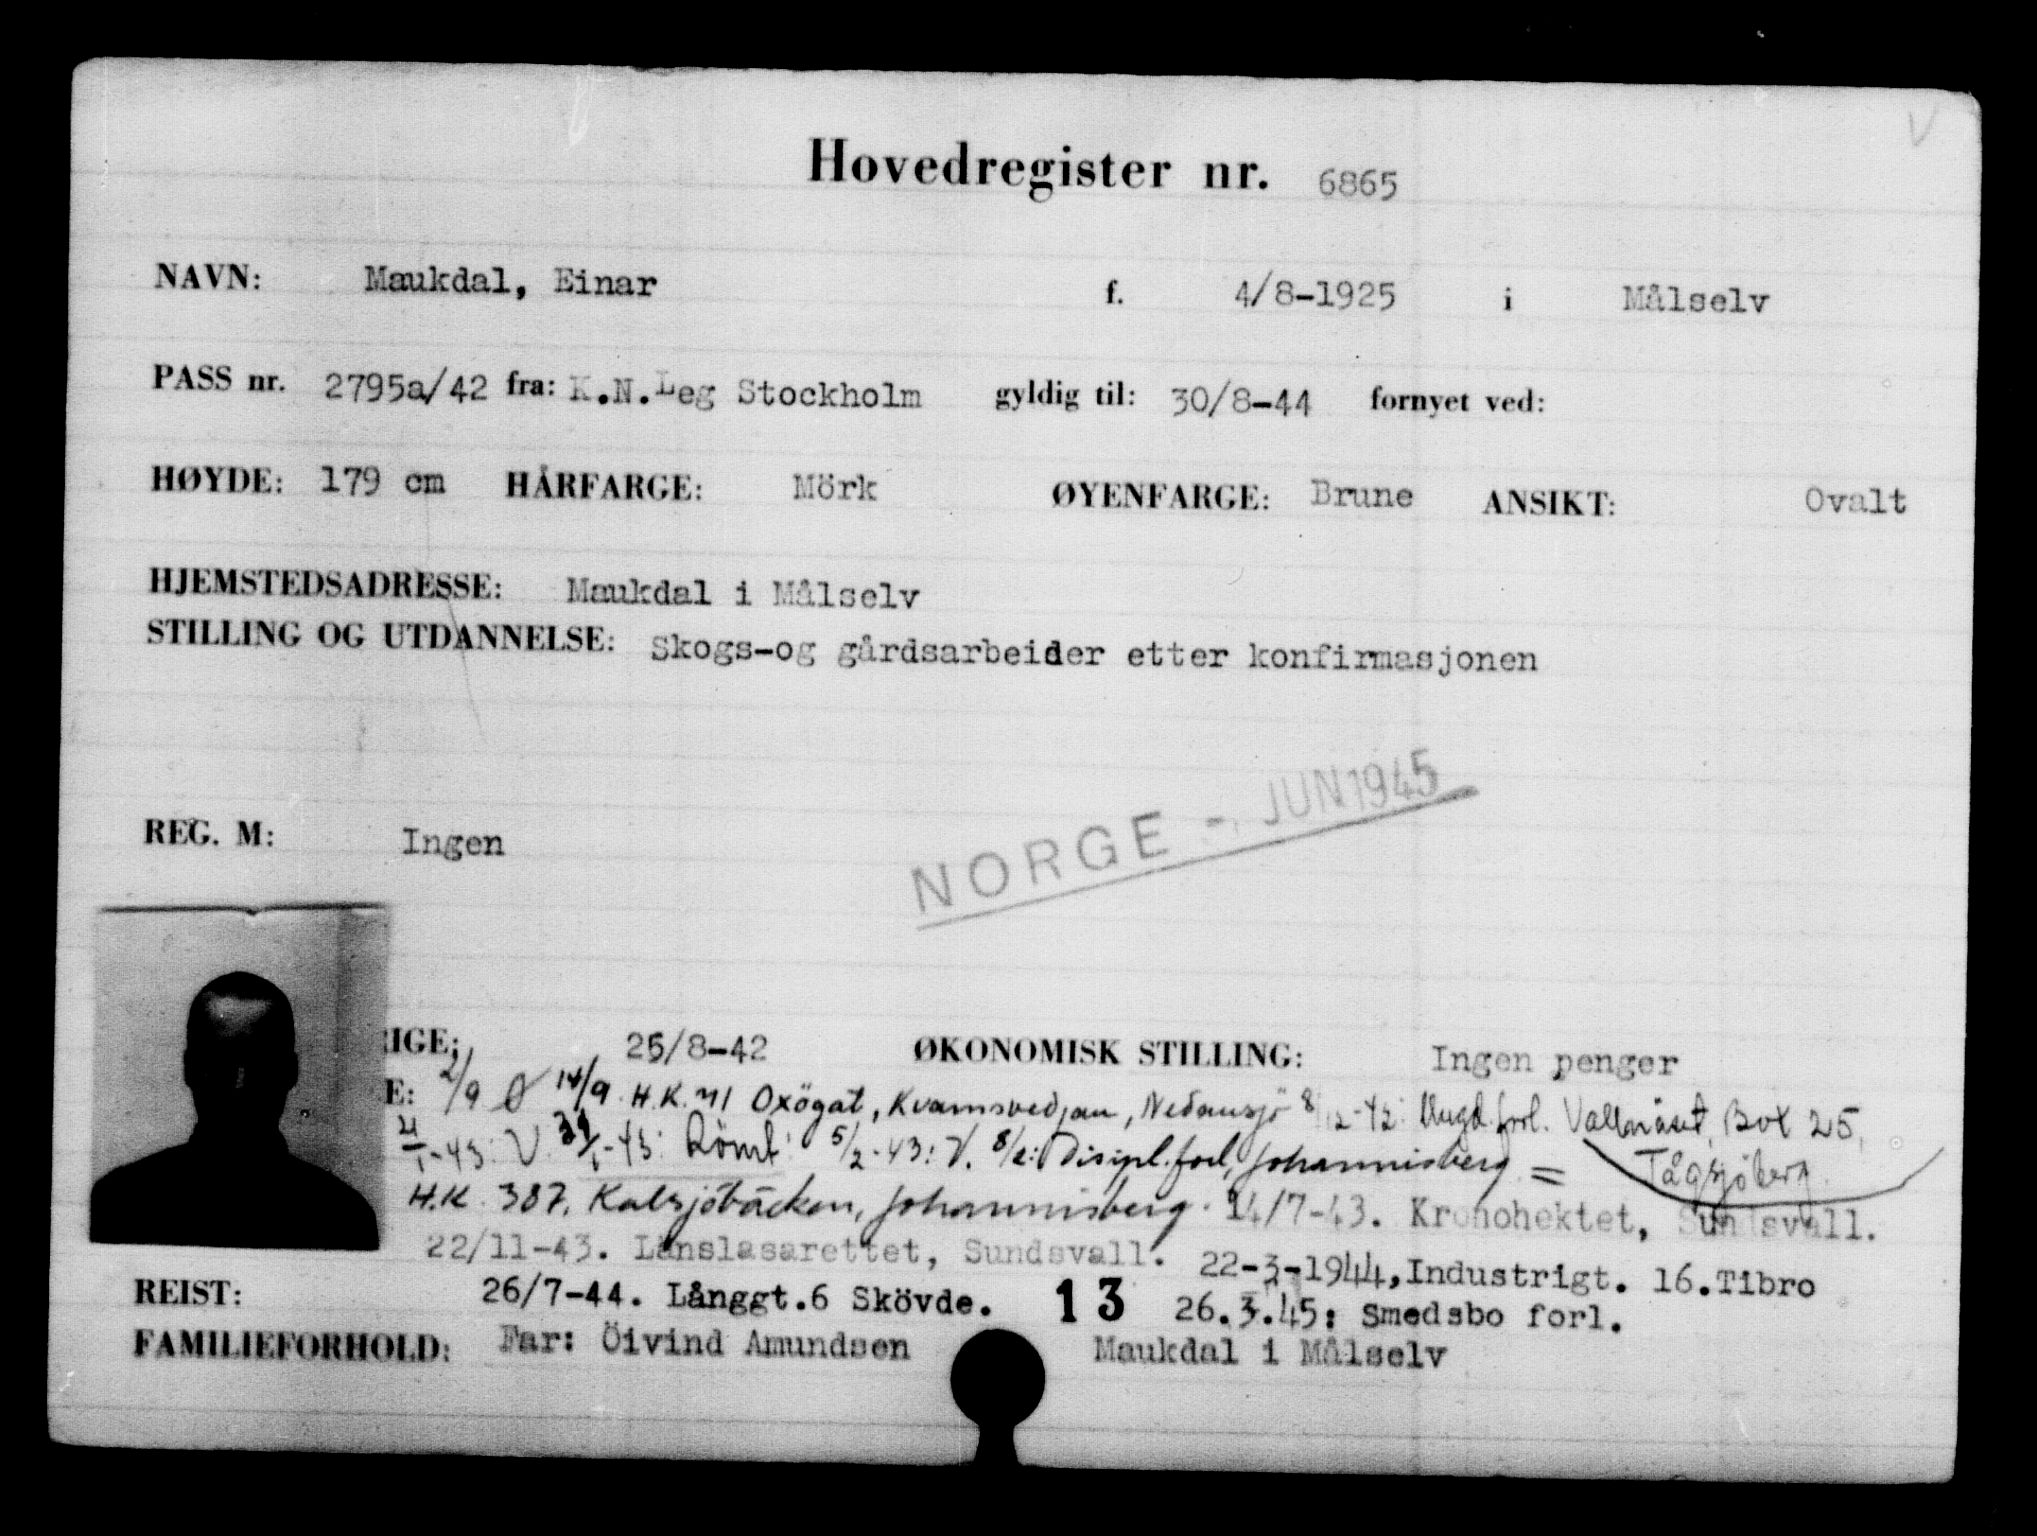 Hovedregister nr. 6865
NAVN: Maukdal, Einar f. 4/8-1925 i Målselv
PASS nr. 2795a/42 fra: K.N.Leg Stockholm gyldig til: 30/8-44 fornyet ved:
HØYDE: 179 cm HÅRFARGE: Mörk ØYENFARGE: Brune ANSIKT: Ovalt
HJEMSTEDSADRESSE: Maukdal i Målselv
STILLING OG UTDANNELSE: Skogs-og gårdsarbeider etter konfirmasjonen
NORGE - JUN 1945
REG. M: Ingen
RIGE: 25/8-42 ØKONOMISK STILLING: Ingen penger
E: 2/9 Ø 14/9 H.K. 711 Oxögat, Kvarnsvedjan, Nedansjö 8/12-42: Ungd.forl. Vallnäset, Box 25,
/1-43: V. /1-43: Römt: 5/2-43: V. 8/2: Disipl.forl, Johannisberg = Tågsjöberg
H.K. 387, Kalsjöbäcken, Johannisberg. 14/7-43. Kronohektet, Sundsvall.
22/11-43. Länslasarettet, Sundsvall. 22-3-1944, Industrigt. 16.Tibro
REIST: 26/7-44. Långgt.6 Skövde. 13 26.3.45: Smedsbo forl.
FAMILIEFORHOLD: Far: Öivind Amundsen Maukdal i Målselv